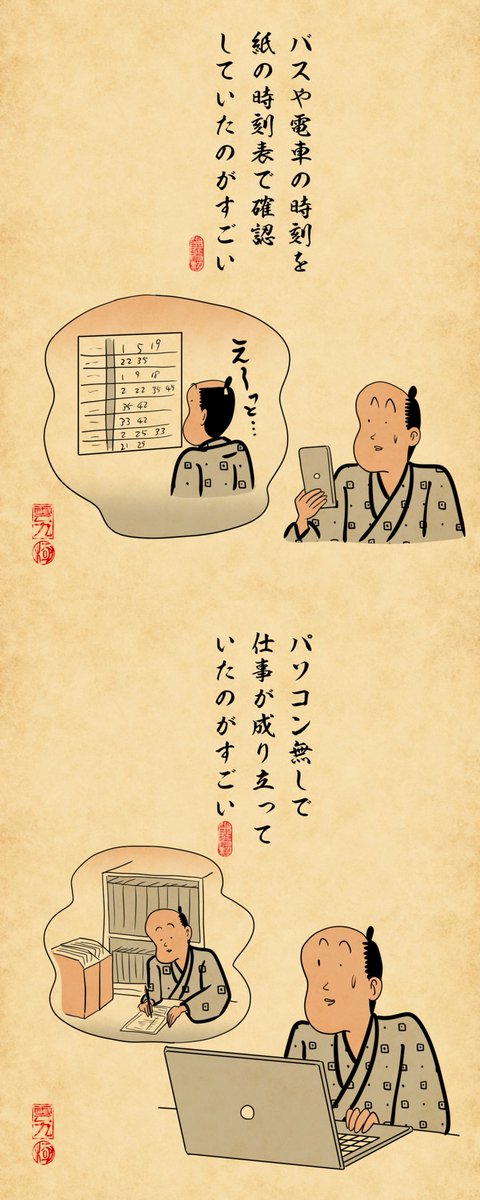 バスや電車の時刻を
紙の時刻表で確認
していたのがすごい
1 5 19
22 35
1 9 18
2 22 35 45
35 42
33 42
2 25 33
21 29
え〜っと…
パソコン無しで
仕事が成り立って
いたのがすごい